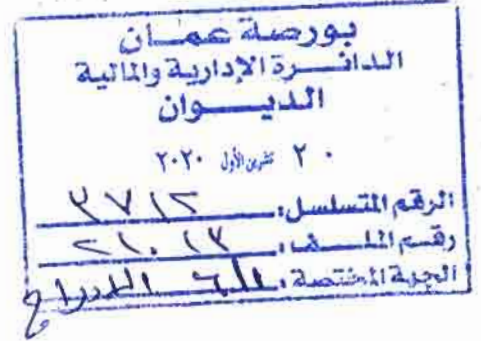 بورصة عمان
الدائرة الإدارية والمالية
الديوان
٢٠ تشرين الأول ٢٠٢٠
الرقم المتسلسل: ٣٧١٢
رقم الملف: ٢١٠١٣
الجهة المختصة: الادراج